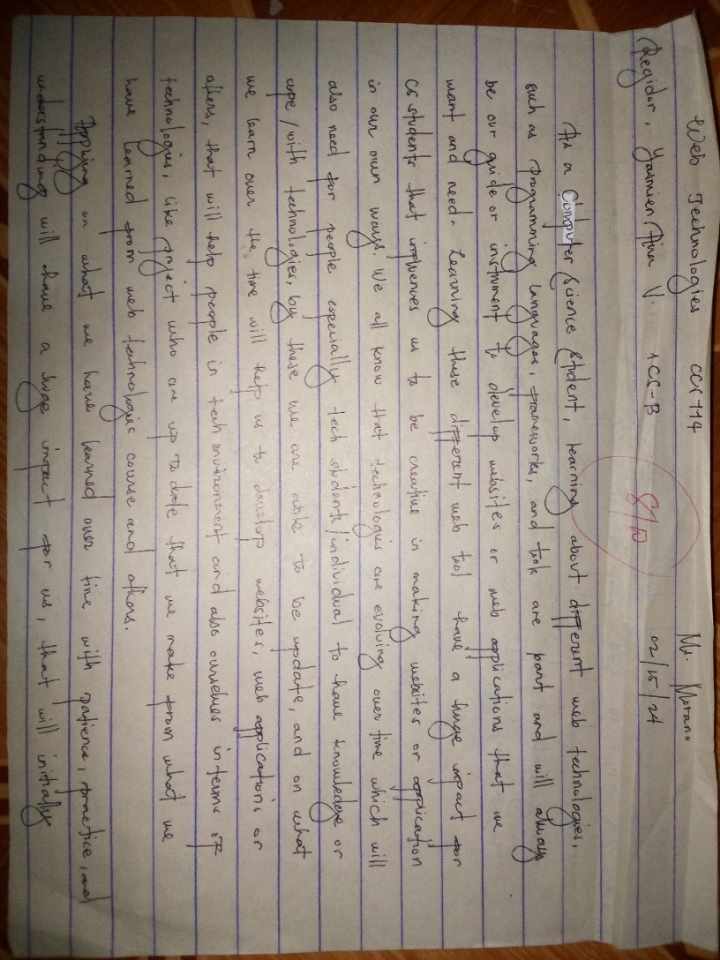 Web Technologies CCS 114 Mr. Morano
Regidor, Yasmien Aina V. 1CS-B 02/15/24
8/10
As a Computer Science Student, learning about different web technologies,
such as programming languages, frameworks, and tools are part and will always
be our guide or instrument to develop websites or web applications that we
want and need. Learning these different web tool have a huge impact for
CS students that influences us to be creative in making websites or application
in our own ways. We all know that technologies are evolving over time which will
also need for people especially tech students/individual to have knowledge or
cope/with technologies, by these we are able to be update, and on what
we learn over the time will help us to develop websites, web applications or
others, that will help people in tech environment and also ourselves in terms of
technologies, like project who are up to date that we make from what we
have learned from web technologies course and others.
Applying on what we have learned over time with patience, practice, and
understanding will have a huge impact for us, that will initially